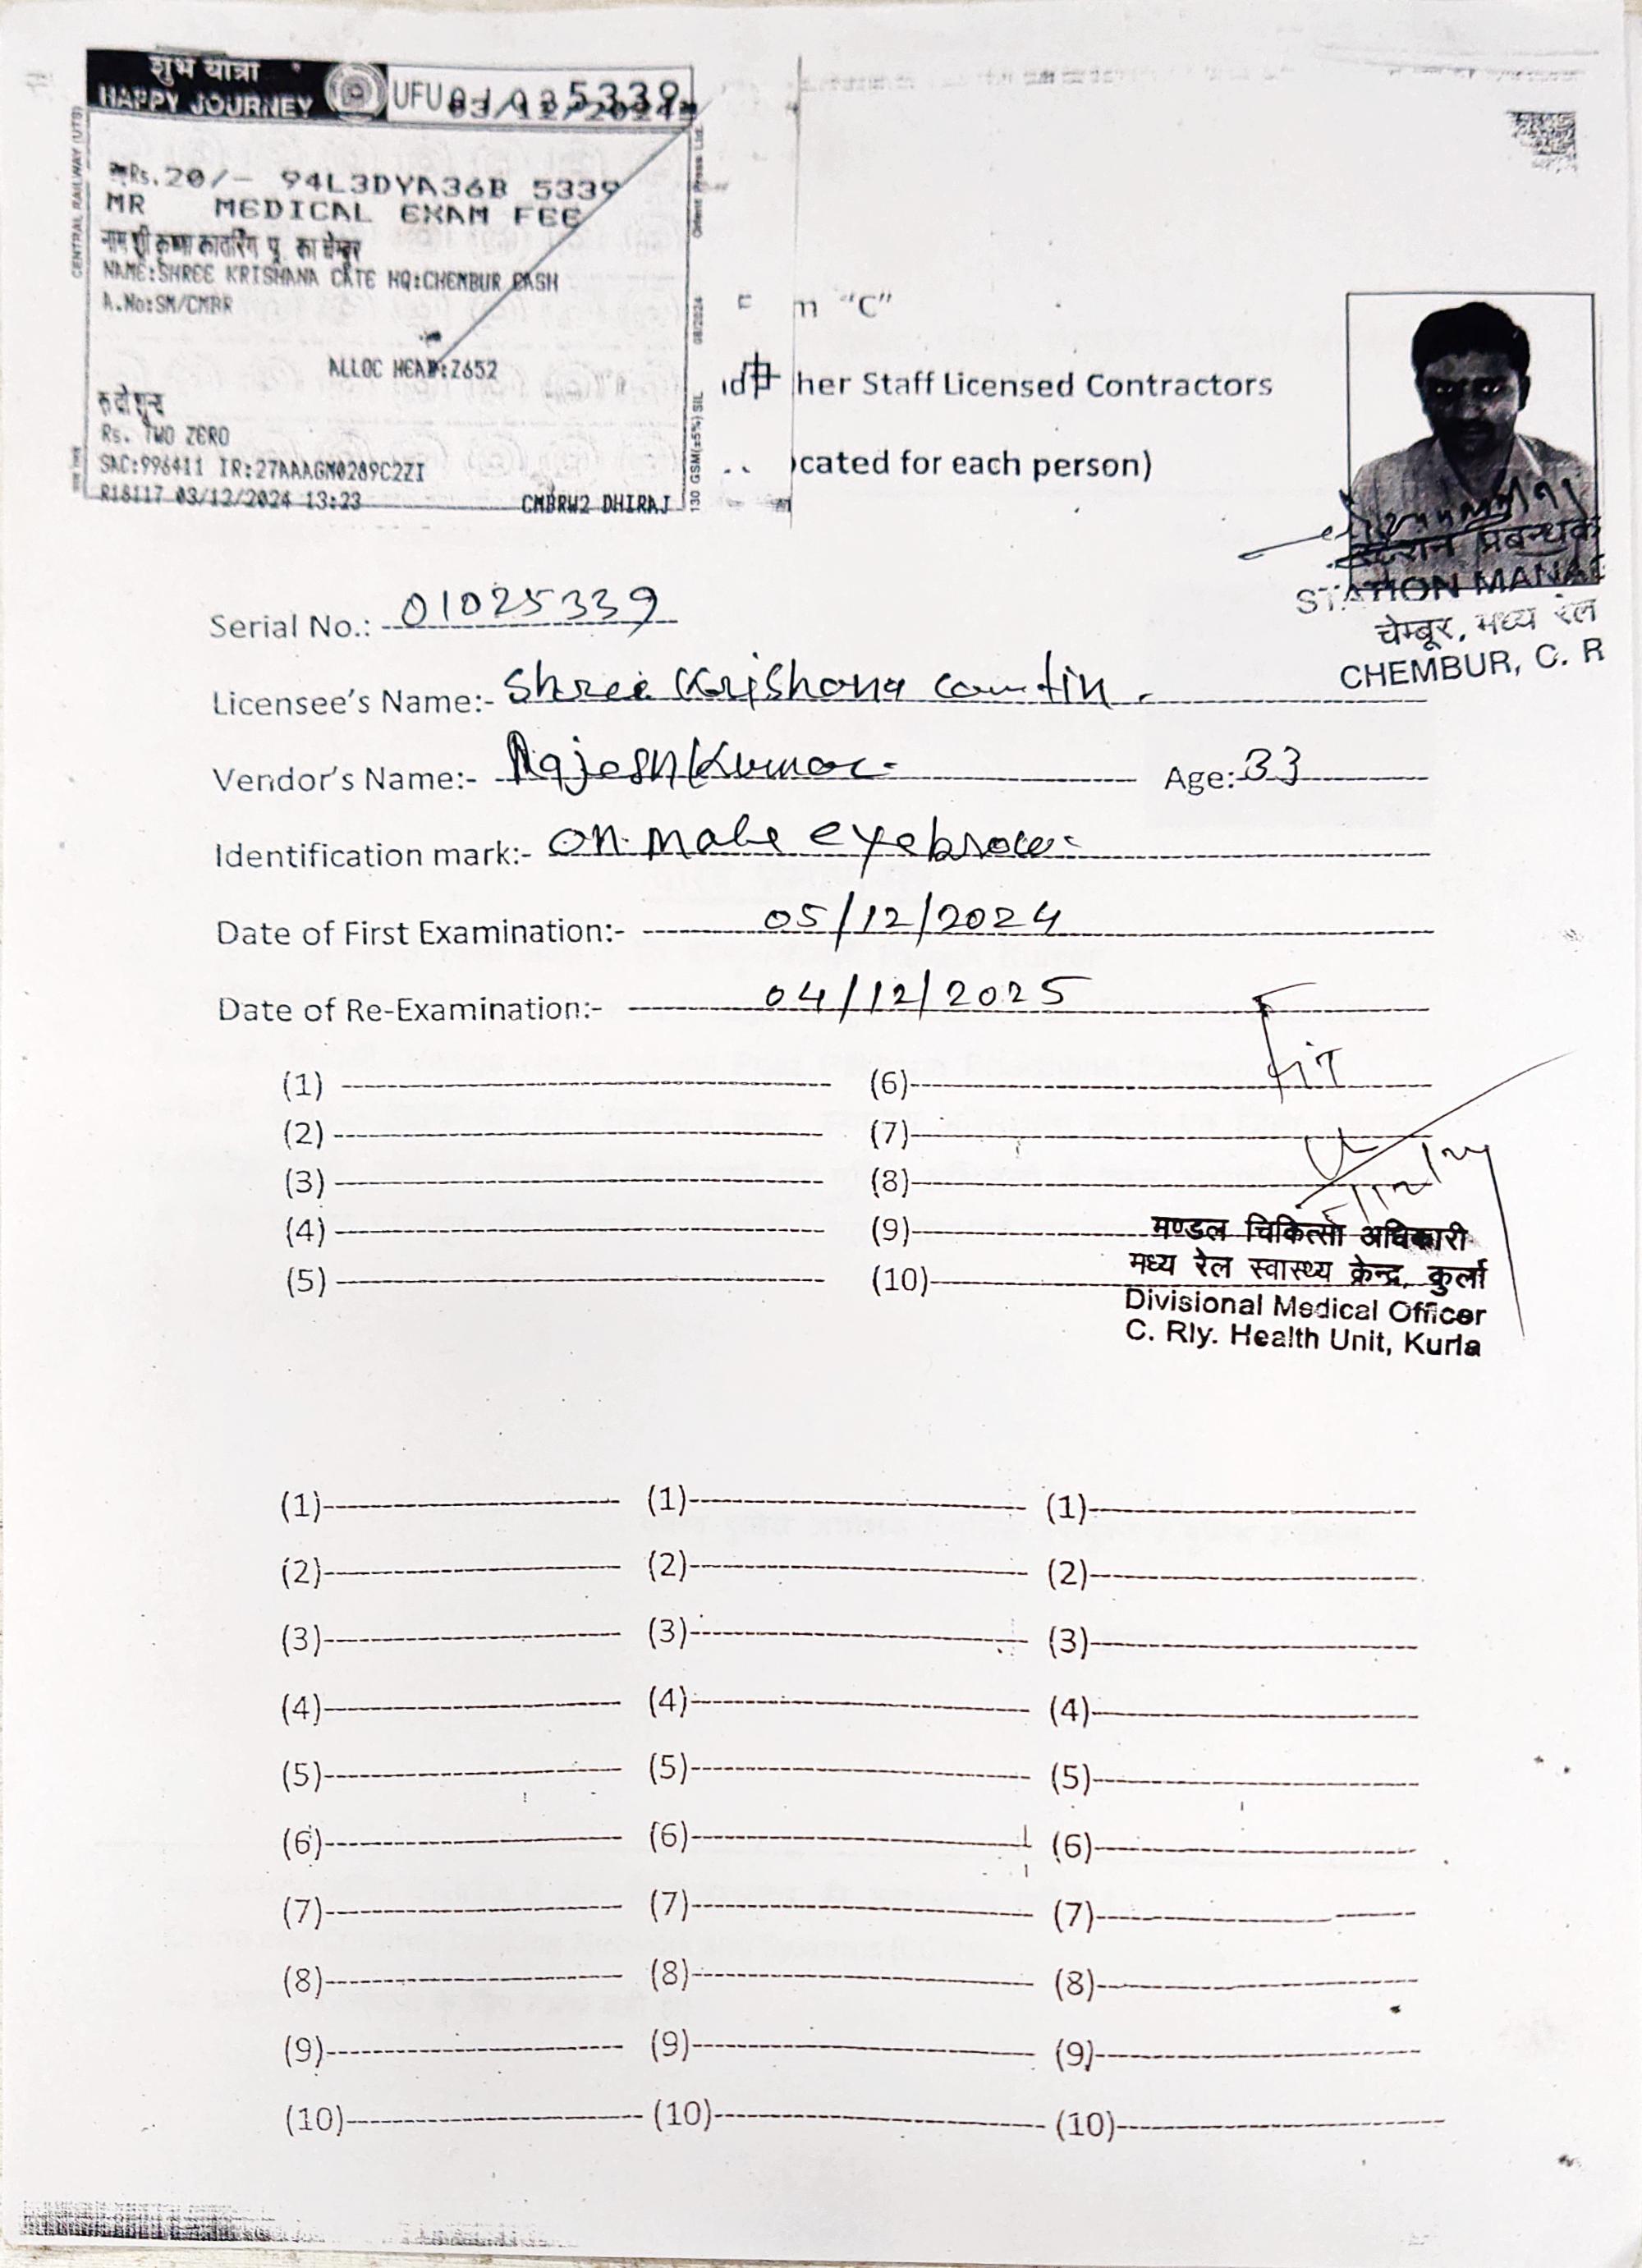 शुभ यात्रा
HAPPY JOURNEY
UFU 01025339
03/12/2024
CENTRAL RAILWAY (UTS)
Rs.20/- 94L3DYA36B 5339
MR MEDICAL EXAM FEE
NAME:SHREE KRISHANA CATE HQ:CHEMBUR CASH
A.No:SM/CMBR
ALLOC HEAD:Z652
रु दो शून्य
Rs. TWO ZERO
SAC:996411 IR:27AAAGM0289C2ZI
R18117 03/12/2024 13:23 CMBRW2 DHIRAJ
130 GSM(±5%) SIL 08/2024 Orient Press Ltd.
m "C"
her Staff Licensed Contractors
cated for each person)
स्टेशन प्रबन्धक
STATION MANAG
चेम्बूर, मध्य रेल
CHEMBUR, C. R
Serial No.: 01025339
Licensee's Name:- Shree Krishana
Vendor's Name:- Rajesh Kumar Age: 33
Identification mark:- on male eyebrow
Date of First Examination:- 05/12/2024
Date of Re-Examination:- 04/12/2025
Fit
(1) (6)
(2) (7)
(3) (8)
(4) (9)
(5) (10)
5/12/24
मण्डल चिकित्सा अधिकारी
मध्य रेल स्वास्थ्य केन्द्र, कुर्ला
Divisional Medical Officer
C. Rly. Health Unit, Kurla
(1) (1) (1)
(2) (2) (2)
(3) (3) (3)
(4) (4) (4)
(5) (5) (5)
(6) (6) (6)
(7) (7) (7)
(8) (8) (8)
(9) (9) (9)
(10) (10) (10)